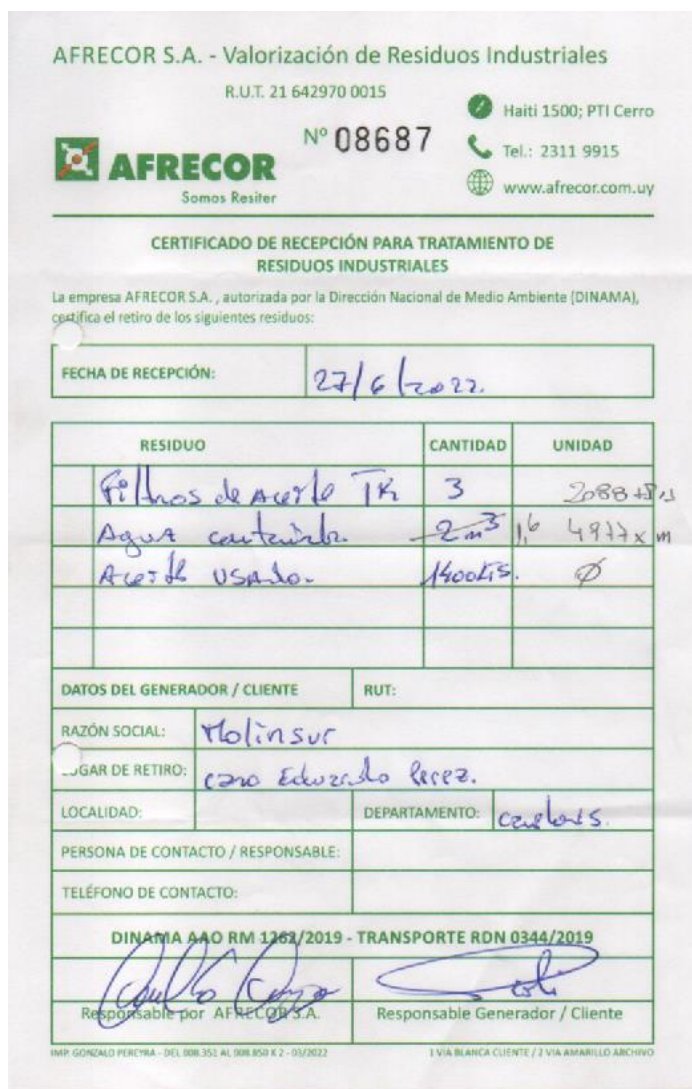 AFRECOR S.A. - Valorización de Residuos Industriales
R.U.T. 21 642970 0015
Haiti 1500; PTI Cerro
Nº 08687
Tel.: 2311 9915
AFRECOR
Somos Resiter
www.afrecor.com.uy
CERTIFICADO DE RECEPCIÓN PARA TRATAMIENTO DE
RESIDUOS INDUSTRIALES
La empresa AFRECOR S.A. , autorizada por la Dirección Nacional de Medio Ambiente (DINAMA),
certifica el retiro de los siguientes residuos:
FECHA DE RECEPCIÓN: 27/6/2022.
RESIDUO CANTIDAD UNIDAD
Filtros de Aceite TK 3 2088
Agua 2 m3 1,6 4977 x m
Aceite usado. 1400Lts. Ø
DATOS DEL GENERADOR / CLIENTE RUT:
RAZÓN SOCIAL: Molinsur
LUGAR DE RETIRO: Eduardo Perez.
LOCALIDAD: DEPARTAMENTO:
PERSONA DE CONTACTO / RESPONSABLE:
TELÉFONO DE CONTACTO:
DINAMA AAO RM 1262/2019 - TRANSPORTE RDN 0344/2019
Responsable por AFRECOR S.A. Responsable Generador / Cliente
IMP. GONZALO PEREYRA - DEL 008.351 AL 008.850 X 2 - 03/2022 1 VIA BLANCA CLIENTE / 2 VIA AMARILLO ARCHIVO